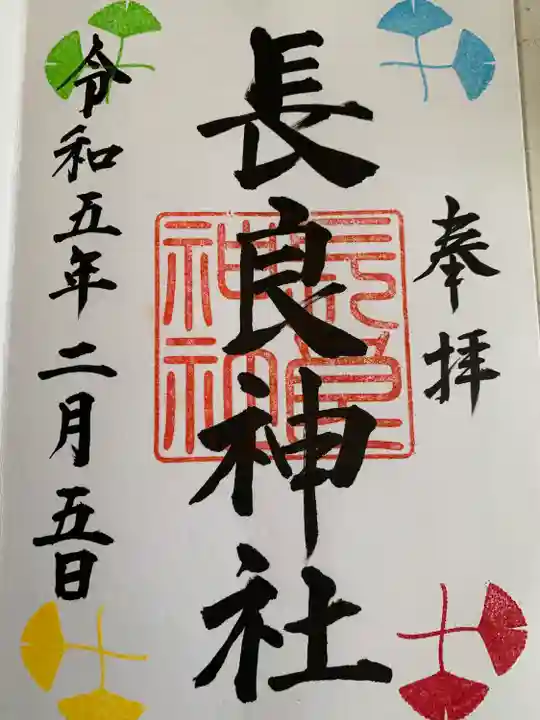 奉拝
長良神社
長良神社
令和五年二月五日